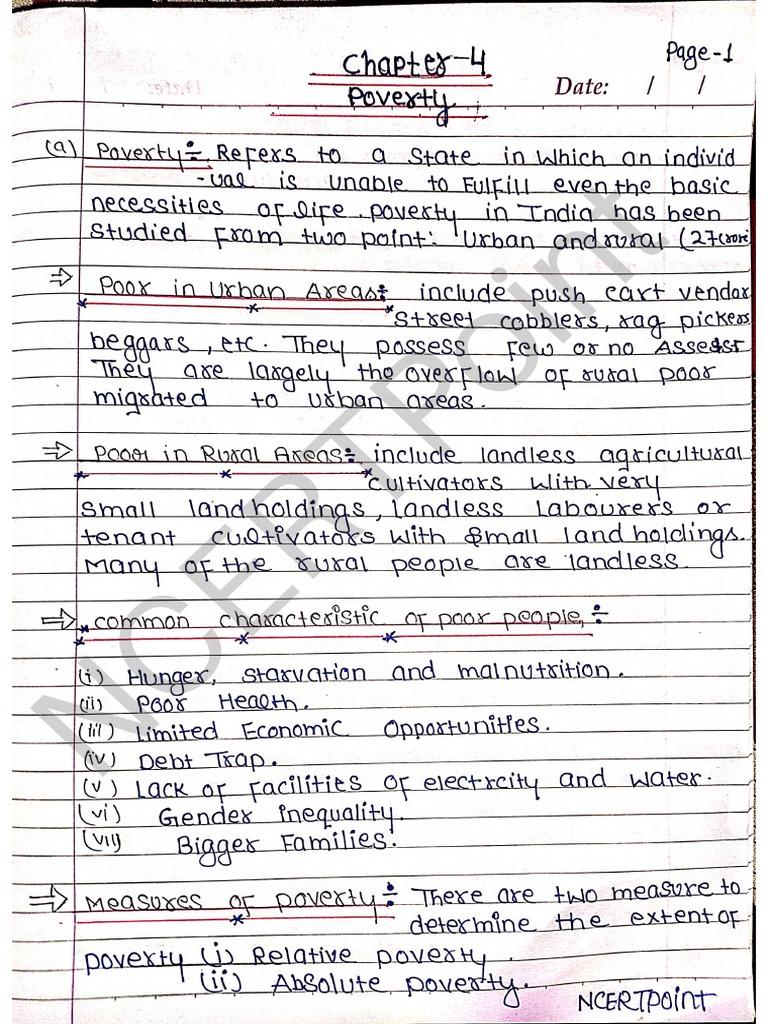 Page-1
Chapter-4
Date: / /
Poverty
(a) Poverty÷ Refers to a State in which an individ
-ual is unable to Fulfill even the basic
necessities of life. poverty in India has been
Studied from two point: Urban and rural (27crore)
⇒ Poor in Urban Areas÷ include push cart vendor
Street cobblers, rag pickers
beggars, etc. They possess few or no
They are largely the overflow of rural poor
migrated to urban areas.
⇒ Poor in Rural Areas÷ include landless agricultural
cultivators with very
Small land holdings, landless Labourers or
tenant cultivators with small land holdings.
Many of the rural people are landless.
⇒ common characteristic of poor people,÷
(i) Hunger, starvation and malnutrition.
(ii) Poor Health.
(iii) Limited Economic Opportunities.
(iv) Debt Trap.
(v) Lack of Facilities of electrcity and water.
(vi) Gender inequality.
(vii) Bigger Families.
⇒ Measures of poverty÷ There are two measure to
determine the extent of
poverty (i) Relative poverty.
(ii) Absolute poverty.
NCERTPOINT
NCERTPoint